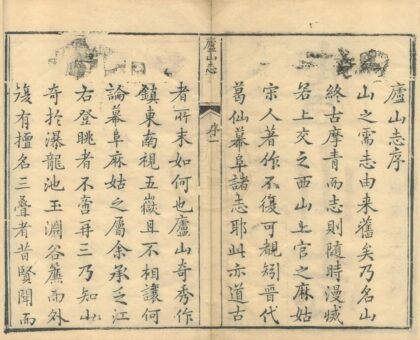 廬山志序
山之需志由来舊矣乃名山
終古摩青而志則隨時漫滅
若上交之西山上官之麻姑
宋人著作不復可覩矧晉代
葛仙幕阜諸志耶此亦道古
廬山志
序一
者所末如何也廬山奇秀作
鎮東南視五嶽且不相讓何
論幕阜麻姑之屬余承乏江
右登眺者不啻再三乃知山
奇於瀑龍池玉淵谷簾而外
復有擅名三疊者昔賢聞而